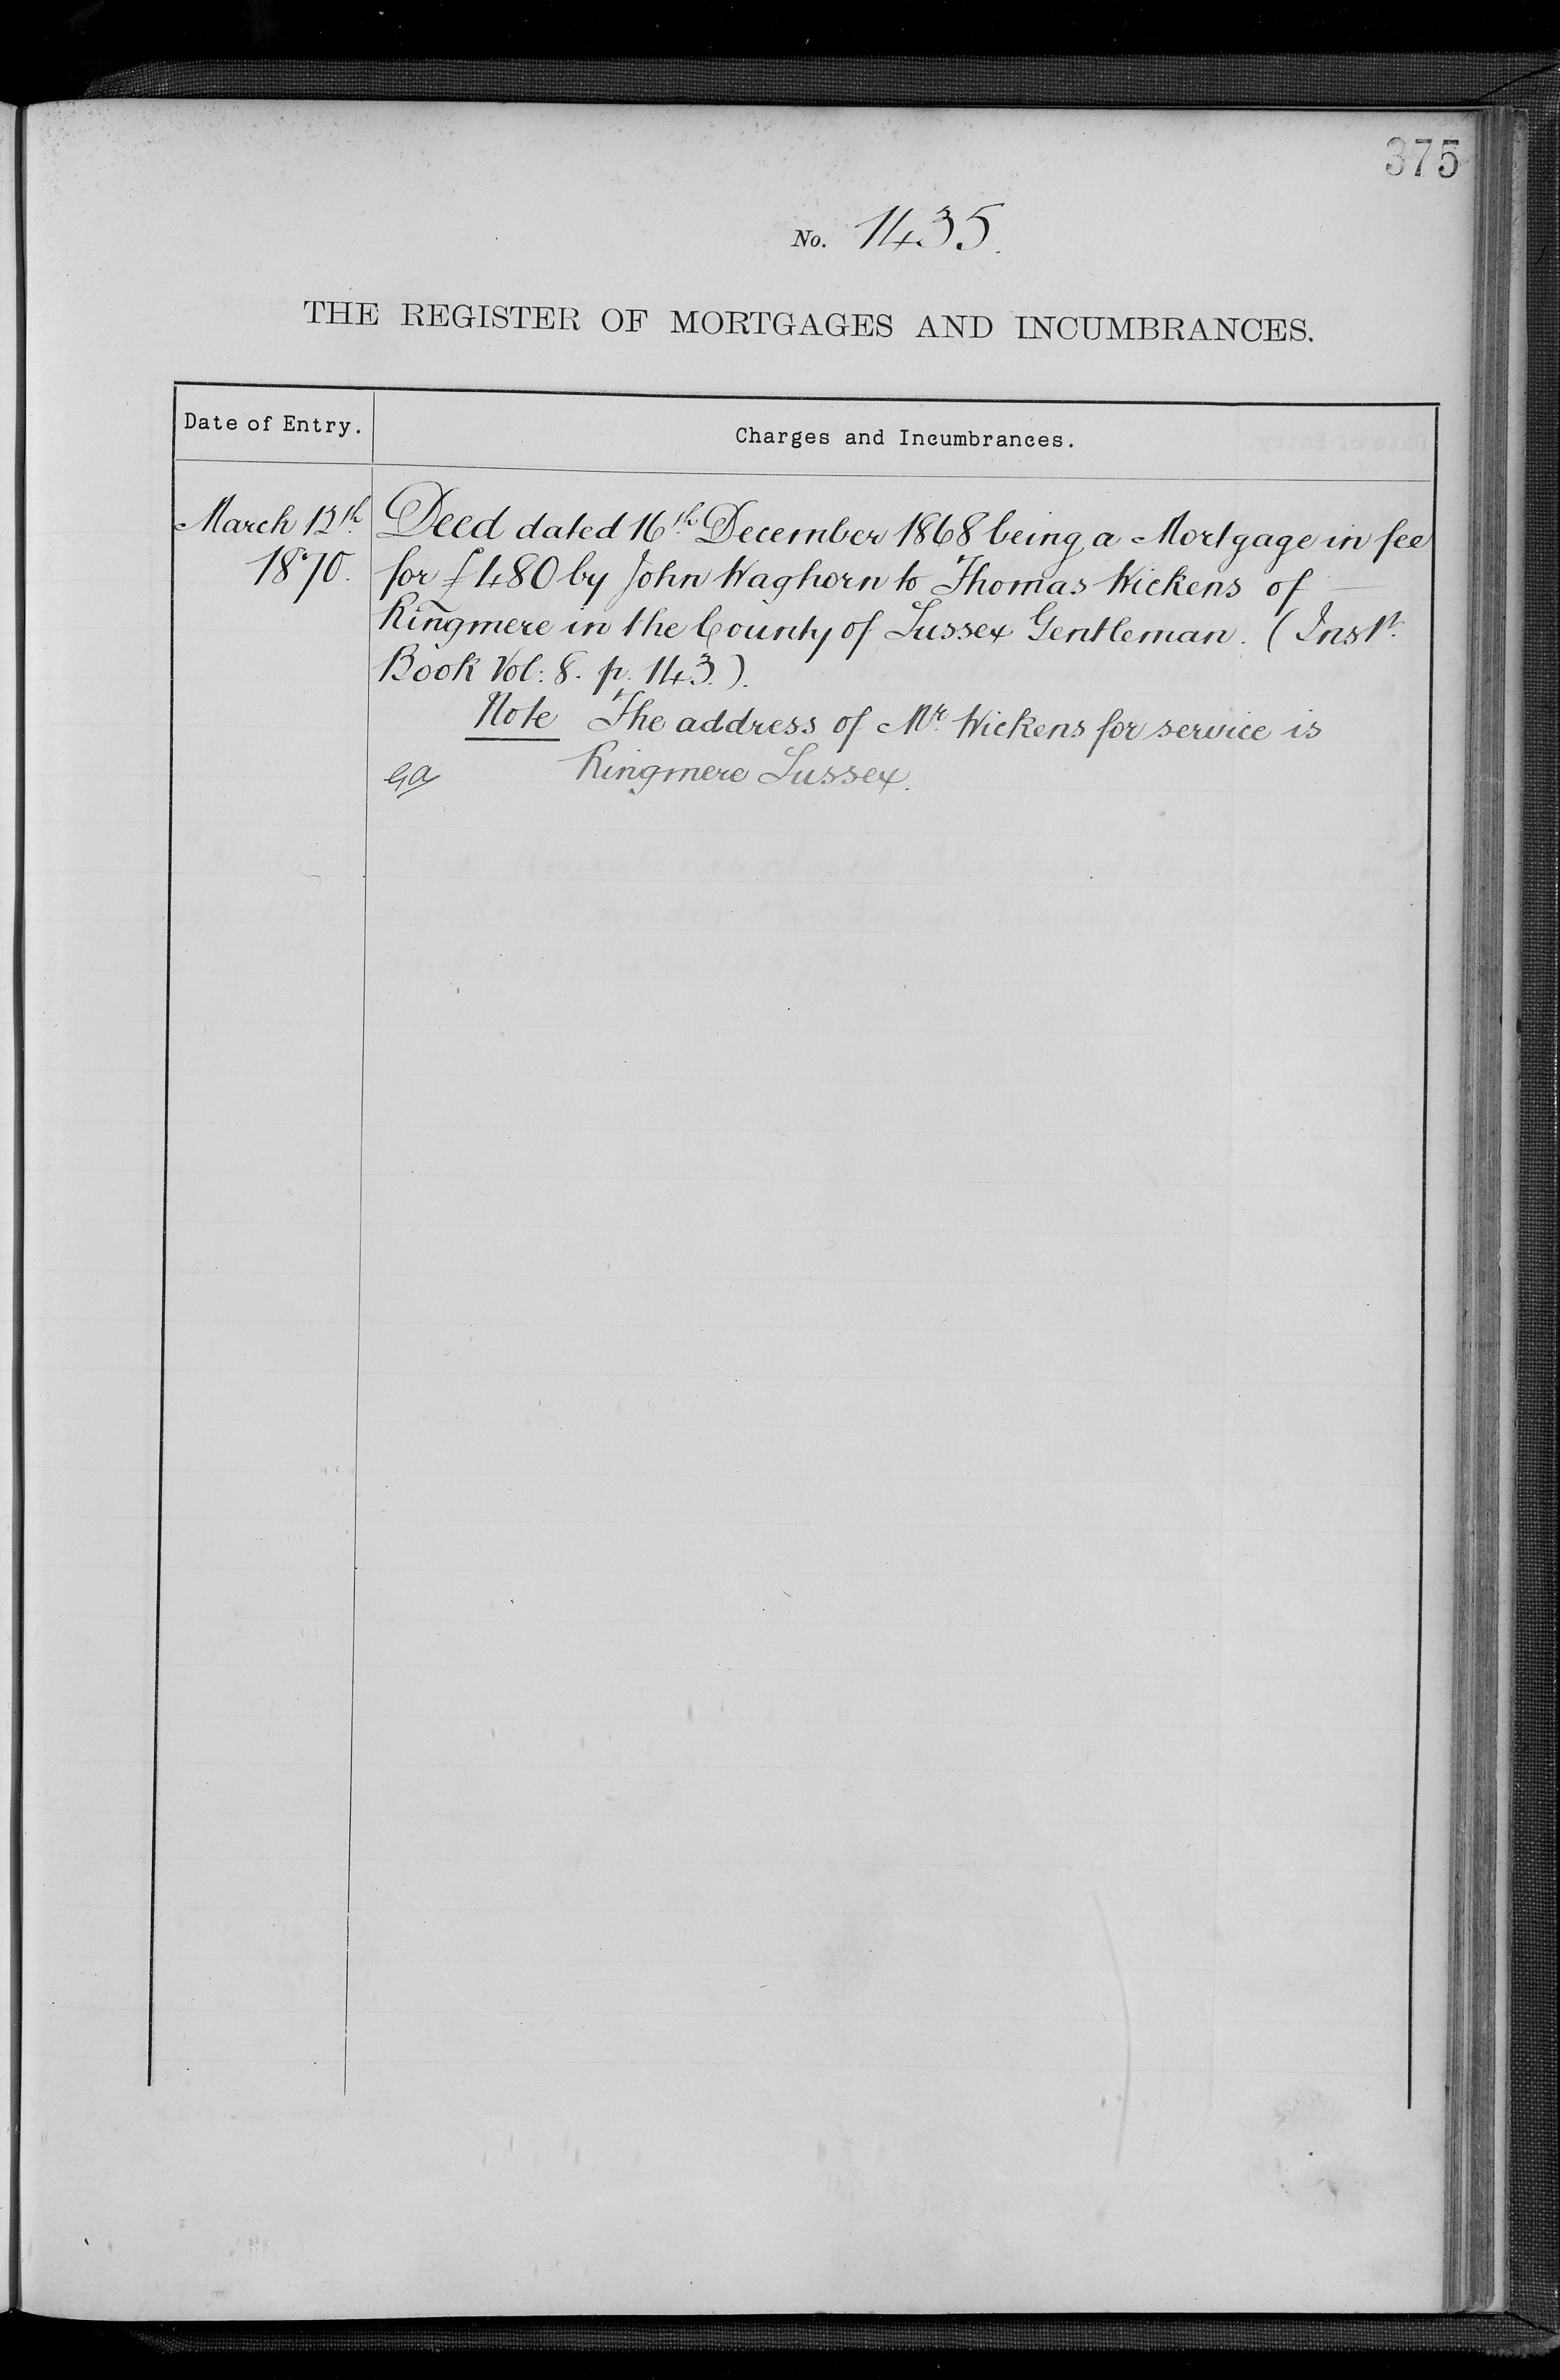 375
No. 1435.
THE REGISTER OF MORTGAGES AND INCUMBRANCES.
Date of Entry.
Charges and Incumbrances.
March 12th
1870.
Deed dated 16th December 1868 being a Mortgage in fee
for £480 by John Waghorn to Thomas Wickens of
Ringmere in the County of Sussex Gentleman. (Inst.
Book Vol: 8. p. 143.).
Note The address of Mr. Wickens for service is
Ringmere Sussex.